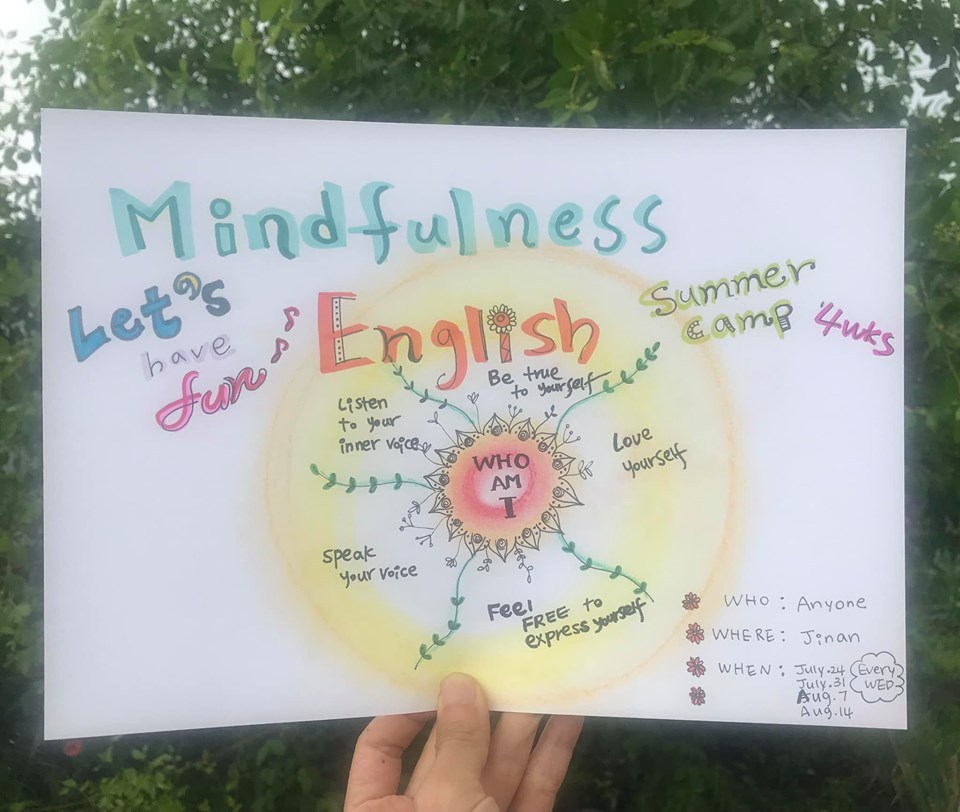 Mindfulness
English
Let's
have
fun
Summer
camp
4wks
Be true
to yourself
Listen
to your
inner voice
Love
yourself
WHO
AM
I
speak
your voice
Feel
FREE to
express yourself
WHO: Anyone
WHERE: Jinan
WHEN: July.24
July.31
Aug.7
Aug.14
Every
WED